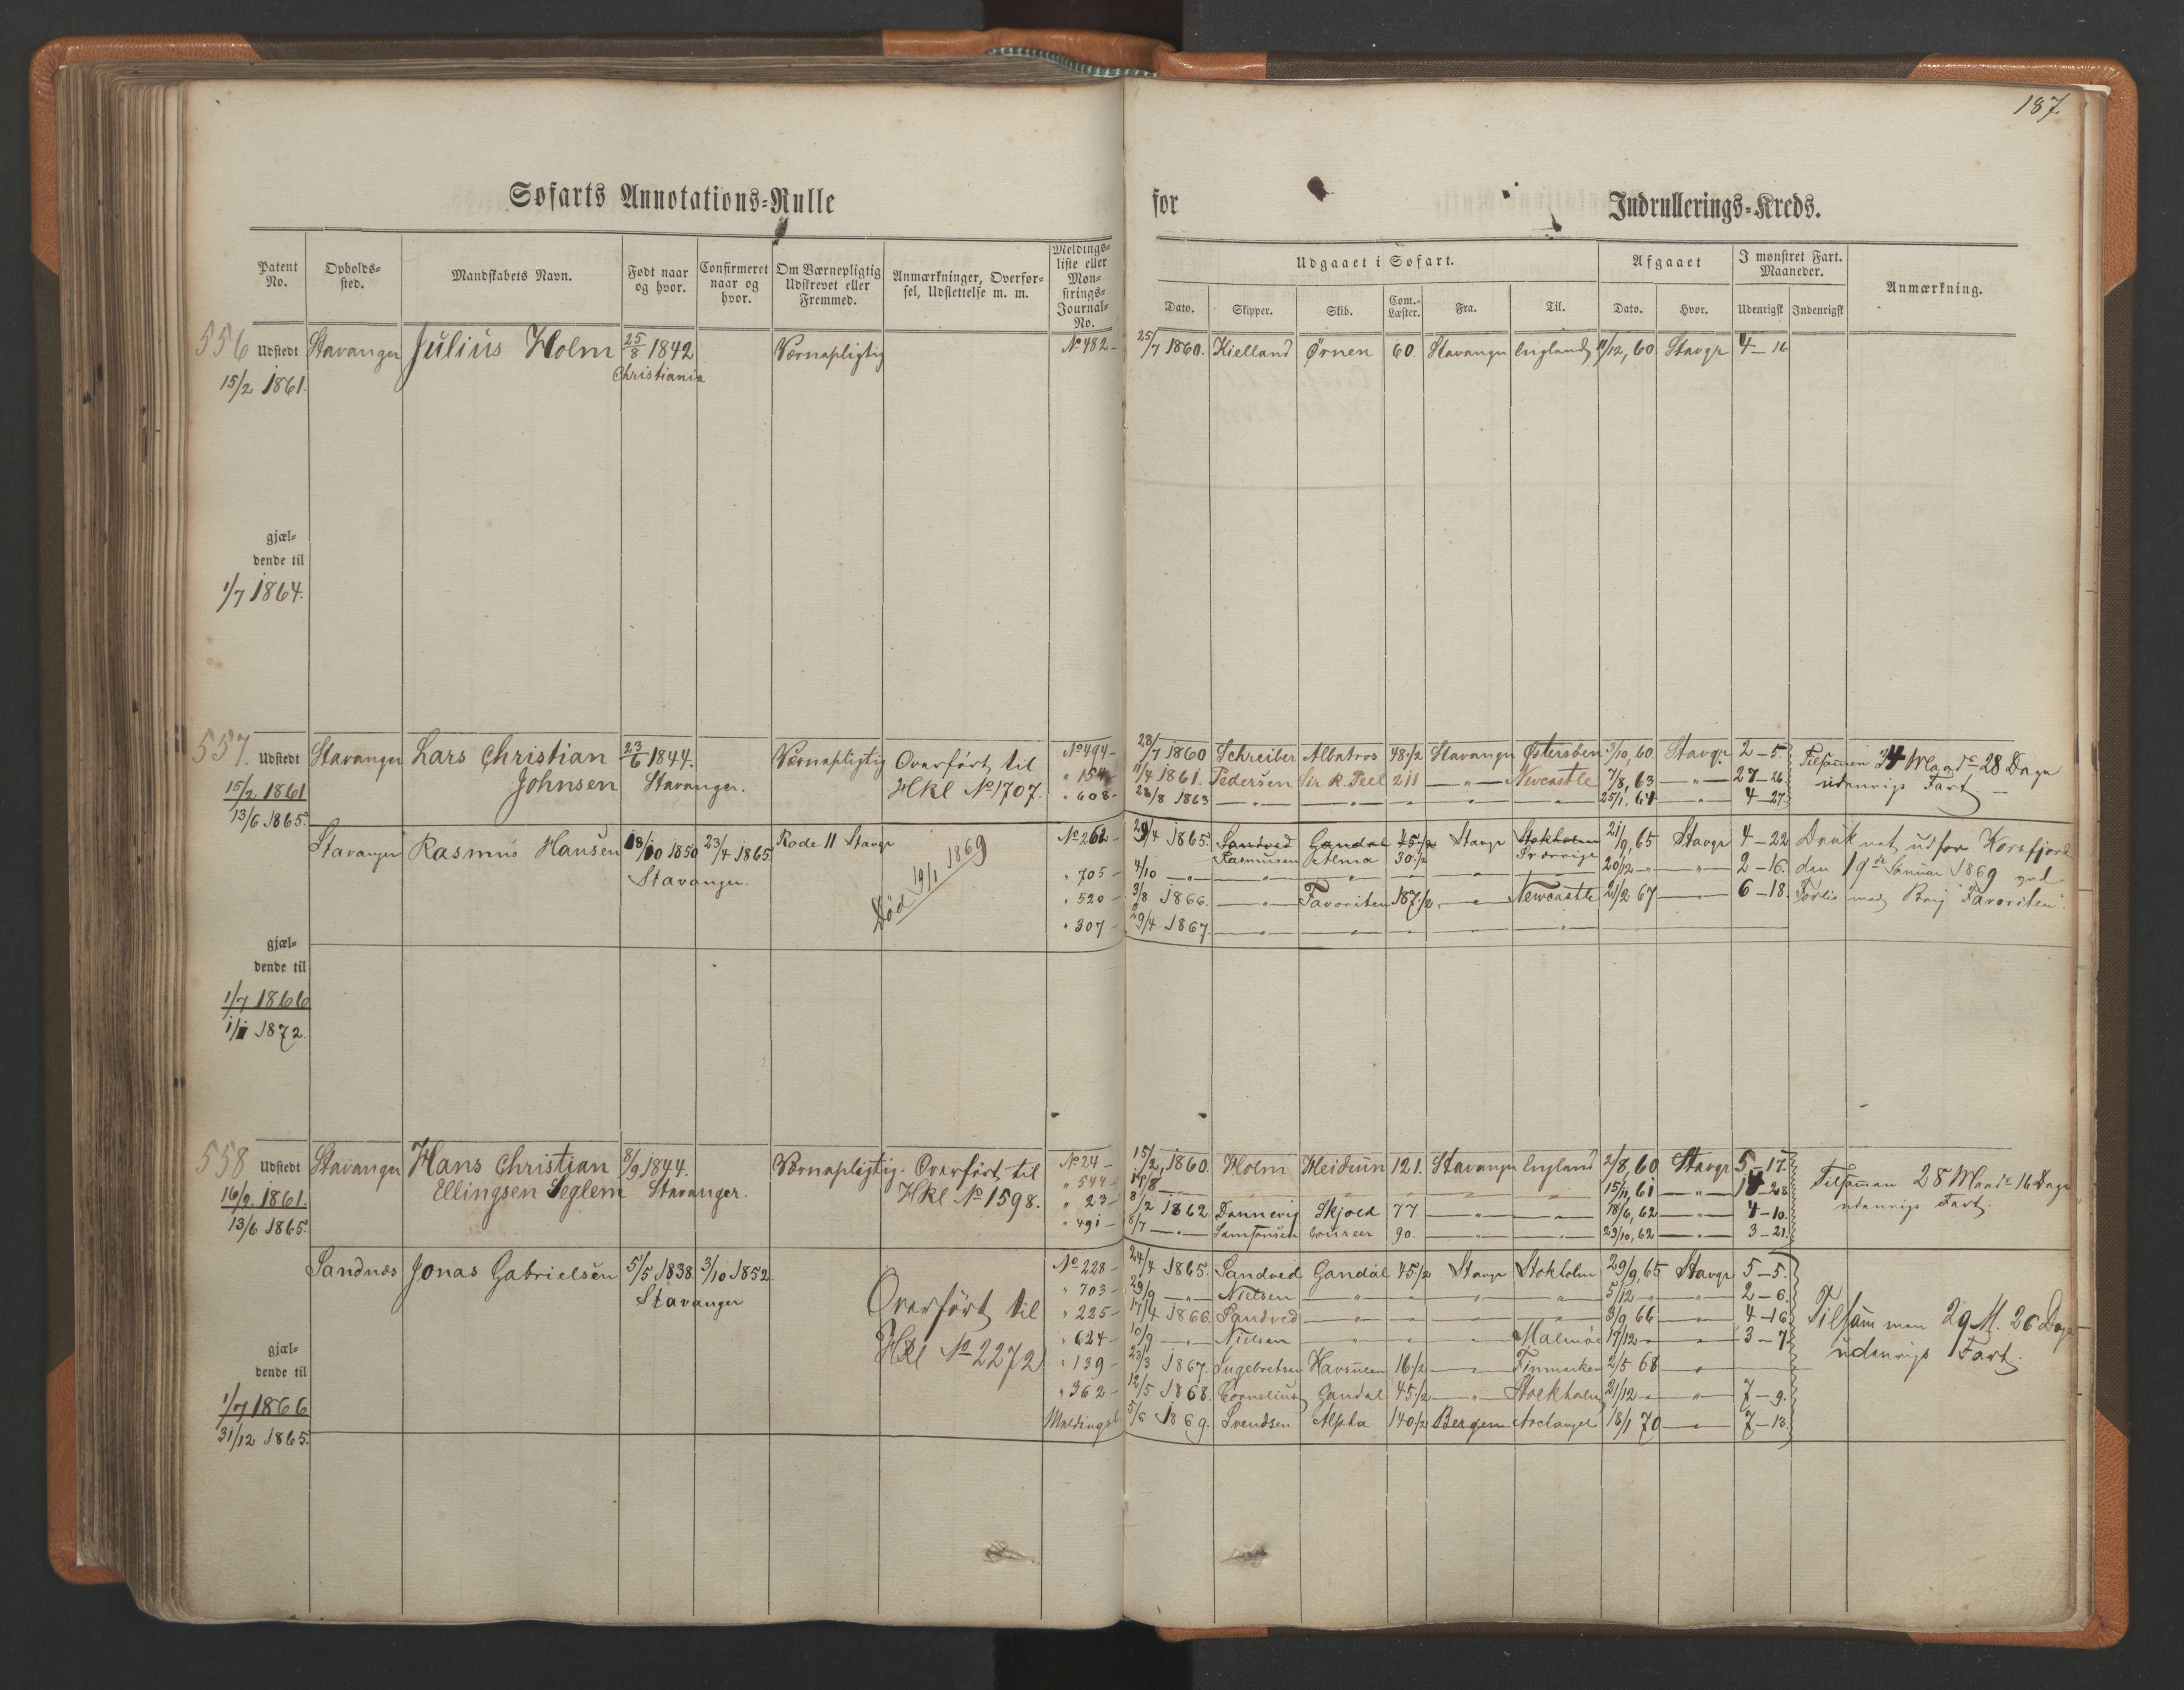 187
Søfarts Annotations-Rulle for Indrullerings-Kreds.
Patent No. Opholds-sted. Mandskabets Navn. Født naar og hvor. Confirmeret naar og hvor. Om Værnepligtig Udskrevet eller Fremmed. Anmærkninger, Overførsel, Udslettelse m. m. Meldings-liste eller Mønstrings-Journal-No.
Udgaaet i Søfart. Afgaaet I mønstret Fart. Maaneder. Anmærkning.
Dato. Skipper. Skib. Com.-Læster. Fra. Til. Dato. Hvor. Udenrigsk Indenrigsk
556 Udstedt Stavanger Julius Holm 25/8 1842 Værnepligtig No 482 25/7 1860. Kielland Ørnen 60. Stavanger England /12, 60 Stavgr 4-16
15/2 1861. Christiania
gjæl-
dende til
1/7 1864.
557. Udstedt Stavanger Lars Christian 23/6 1844. Værnepligtig Overført til No 494 28/7 1860 Schreiber Albatros 48 1/2 Stavanger Østersøen 3/10, 60. Stavgr. 2-5. Tilsammen 34 Maadr 28 Dage
15/2 1861 Johnsen Stavanger. Hkl No 1707. " 154 11/4 1861. Pedersen Sir R. Peel 211 — " — Newcastle 7/8, 63 — " — 27-26 udenrigs Fart
13/6 1865. " 608 28/8 1863 — " — 25/1, 64 — " — 4-27.
Stavanger Rasmus Hansen 18/10 1850 23/4 1865. Rode 11 Stavgr Død 19/1 1869 No 262 29/4 1865. Sandved Gandal 45 1/2 Stavgr Stokholm 21/9, 65 Stavgr 4-22 Druknet udfor Korsfjord
Stavanger. Rasmussen Alma 30 1/2 Sverrige
" 705 4/10 — " — 20/12 — " — 2-16. den 19de Januar 1869 ved
" 520 3/8 1866. — " — Favoriten 187 1/2 — " — Newcastle 21/2 67 — " — 6-18. Forlis med Brig "Favoriten".
" 307 29/4 1867. — " —
gjæl-
dende til
1/7 1866
1/1 1872.
558 Udstedt Stavanger Hans Christian 8/9 1844. Værnepligtig. Overført til No 24 15/2, 1860. Holm Heidrun 121. Stavanger England 2/8, 60 Stavgr 5-17.
16/2. 1861. Ellingsen Seglem Stavanger. Hkl No 1598. " 544 — " — 15/11, 61 — " — Tilsammen 28 Maadr 16 Dage
13/6 1865. " 23 8/2 1862 Dannevig Skjold 77 — " — 18/6, 62 — " — 4-10. udenrigs Fart.
" 491 8/7 — " — Samsonsen Coureer 90. — " — 23/10, 62 — " — 3-21.
Sandnæs Jonas Gabrielsen 5/5 1838. 3/10 1852. No 228 24/4 1865. Sandved Gandal 45 1/2 Stavgr Stokholm 29/9, 65 Stavgr 5-5.
Stavanger Overført til " 703 29/9 — " — Nielsen — " — 5/12 — " — 2-6.
Hkl No 2272 " 225 17/4 1866. Sandved — " — 3/9 66 — " — 4-16. Tilsammen 29 M. 26 Dage
" 624 10/9 — " — Nielsen — " — Malmøe 17/12 — " — 3-7. udenrigs Fart.
gjæl- " 139 23/3 1867. Havsulen 16 1/2 — " — Finmarken 2/5 68 — " —
dende til " 362 12/5 1868. Cornelius Gandal 45 1/2 — " — Stockholm 21/12 — " — 7-9.
1/7 1866 Meldingsl 5/6 1869. Svendsen Alpha 140 1/2 Bergen Archangel 18/1 70 — " — 7-13.
31/12 1865.